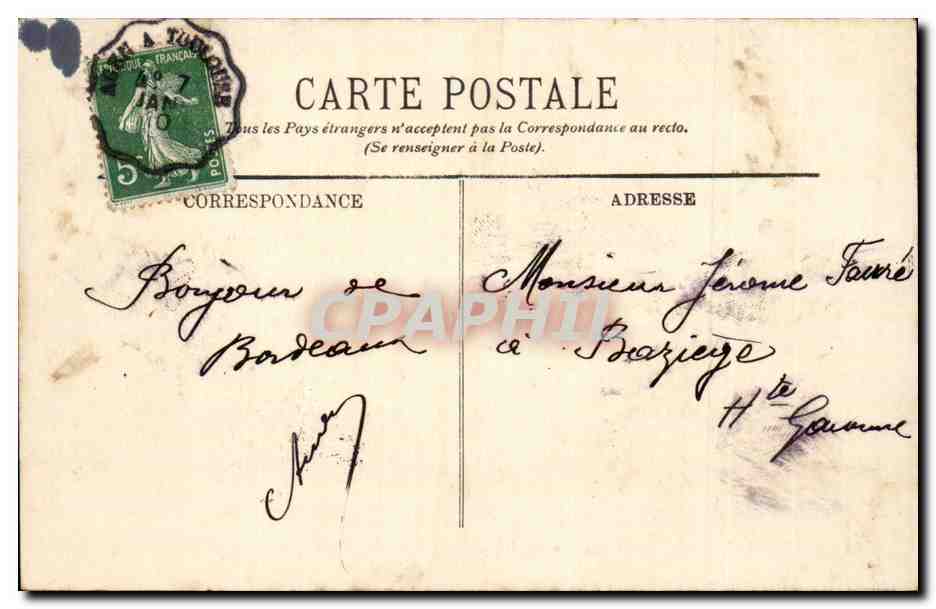 AGEN A TOULOUSE
RÉPUBLIQUE FRANÇAISE
7
JAN
10
5
POSTES
CARTE POSTALE
Tous les Pays étrangers n'acceptent pas la Correspondance au recto.
(Se renseigner à la Poste).
CORRESPONDANCE
ADRESSE
Bonjour de
Bordeaux
Monsieur Jérome Fauré
à Baziege
Hte Garonne
CPAPHIL